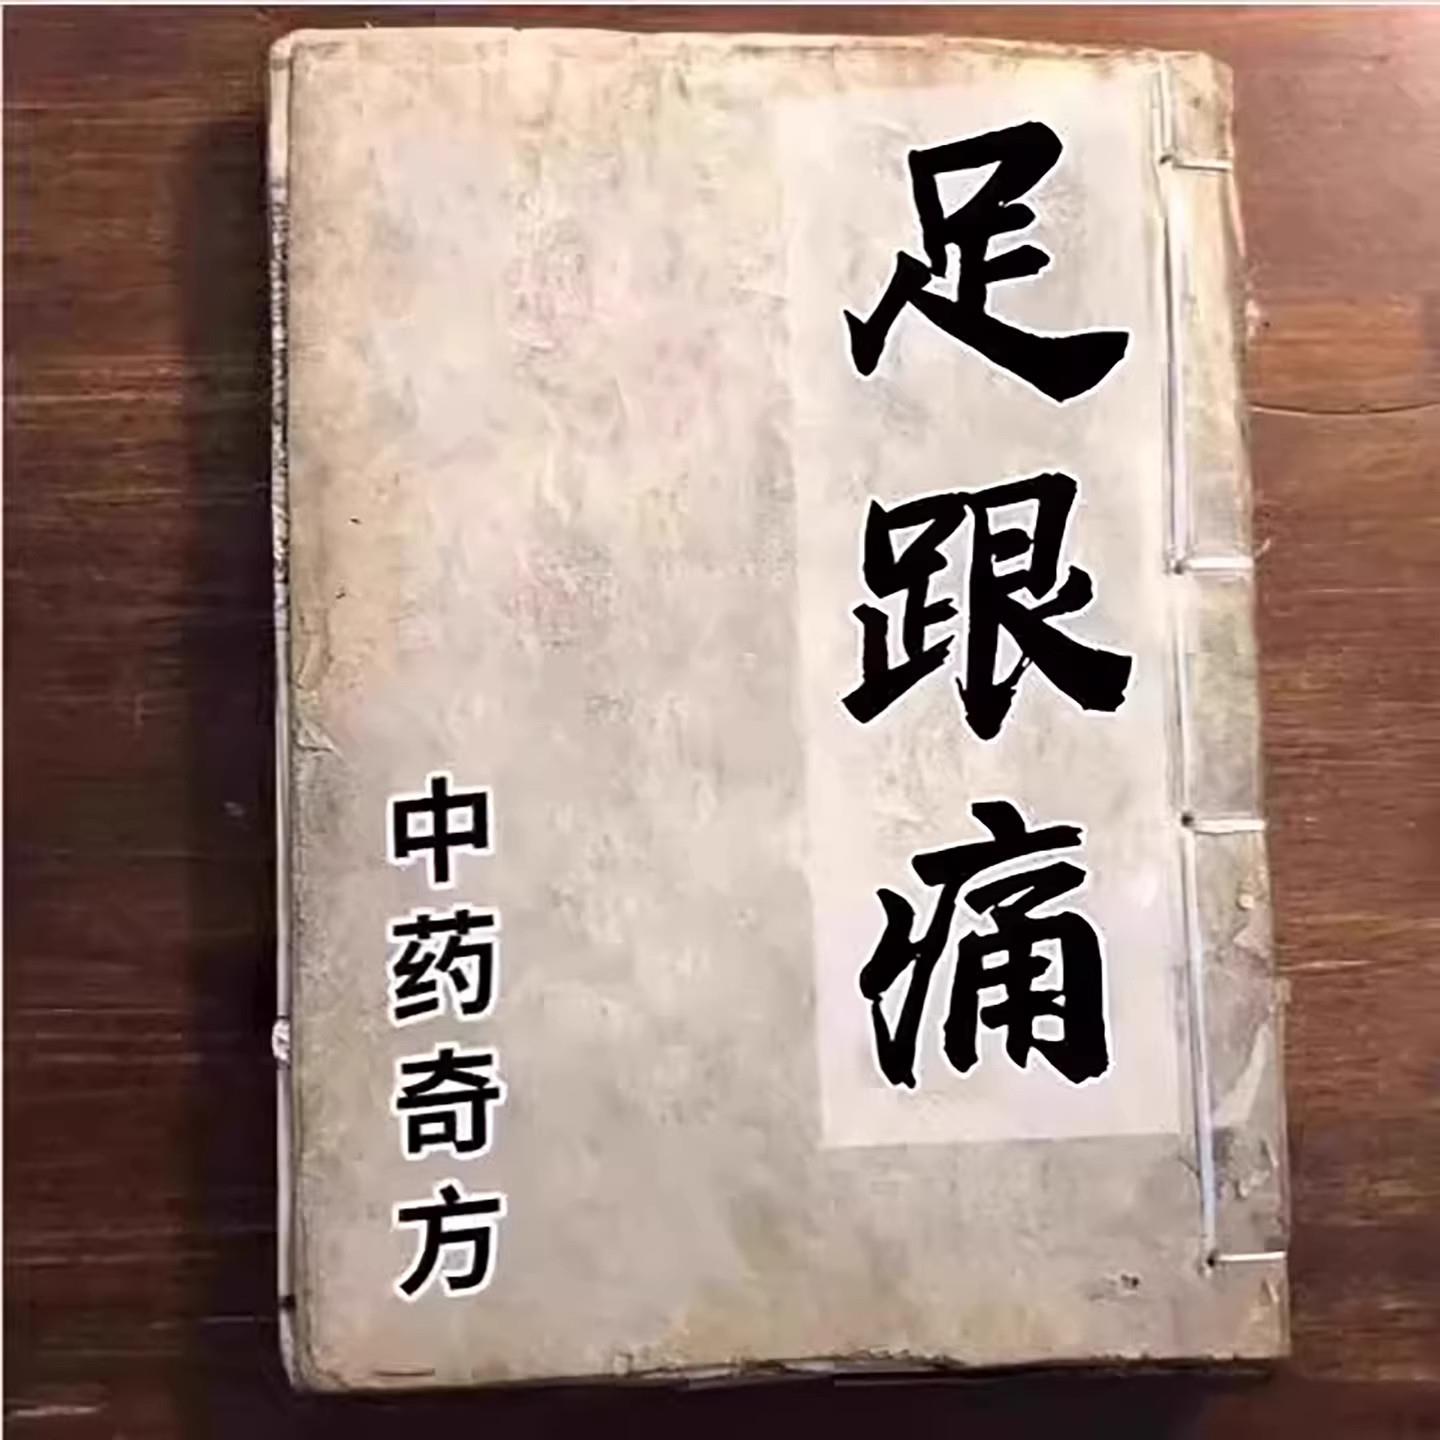 足跟痛
中药奇方